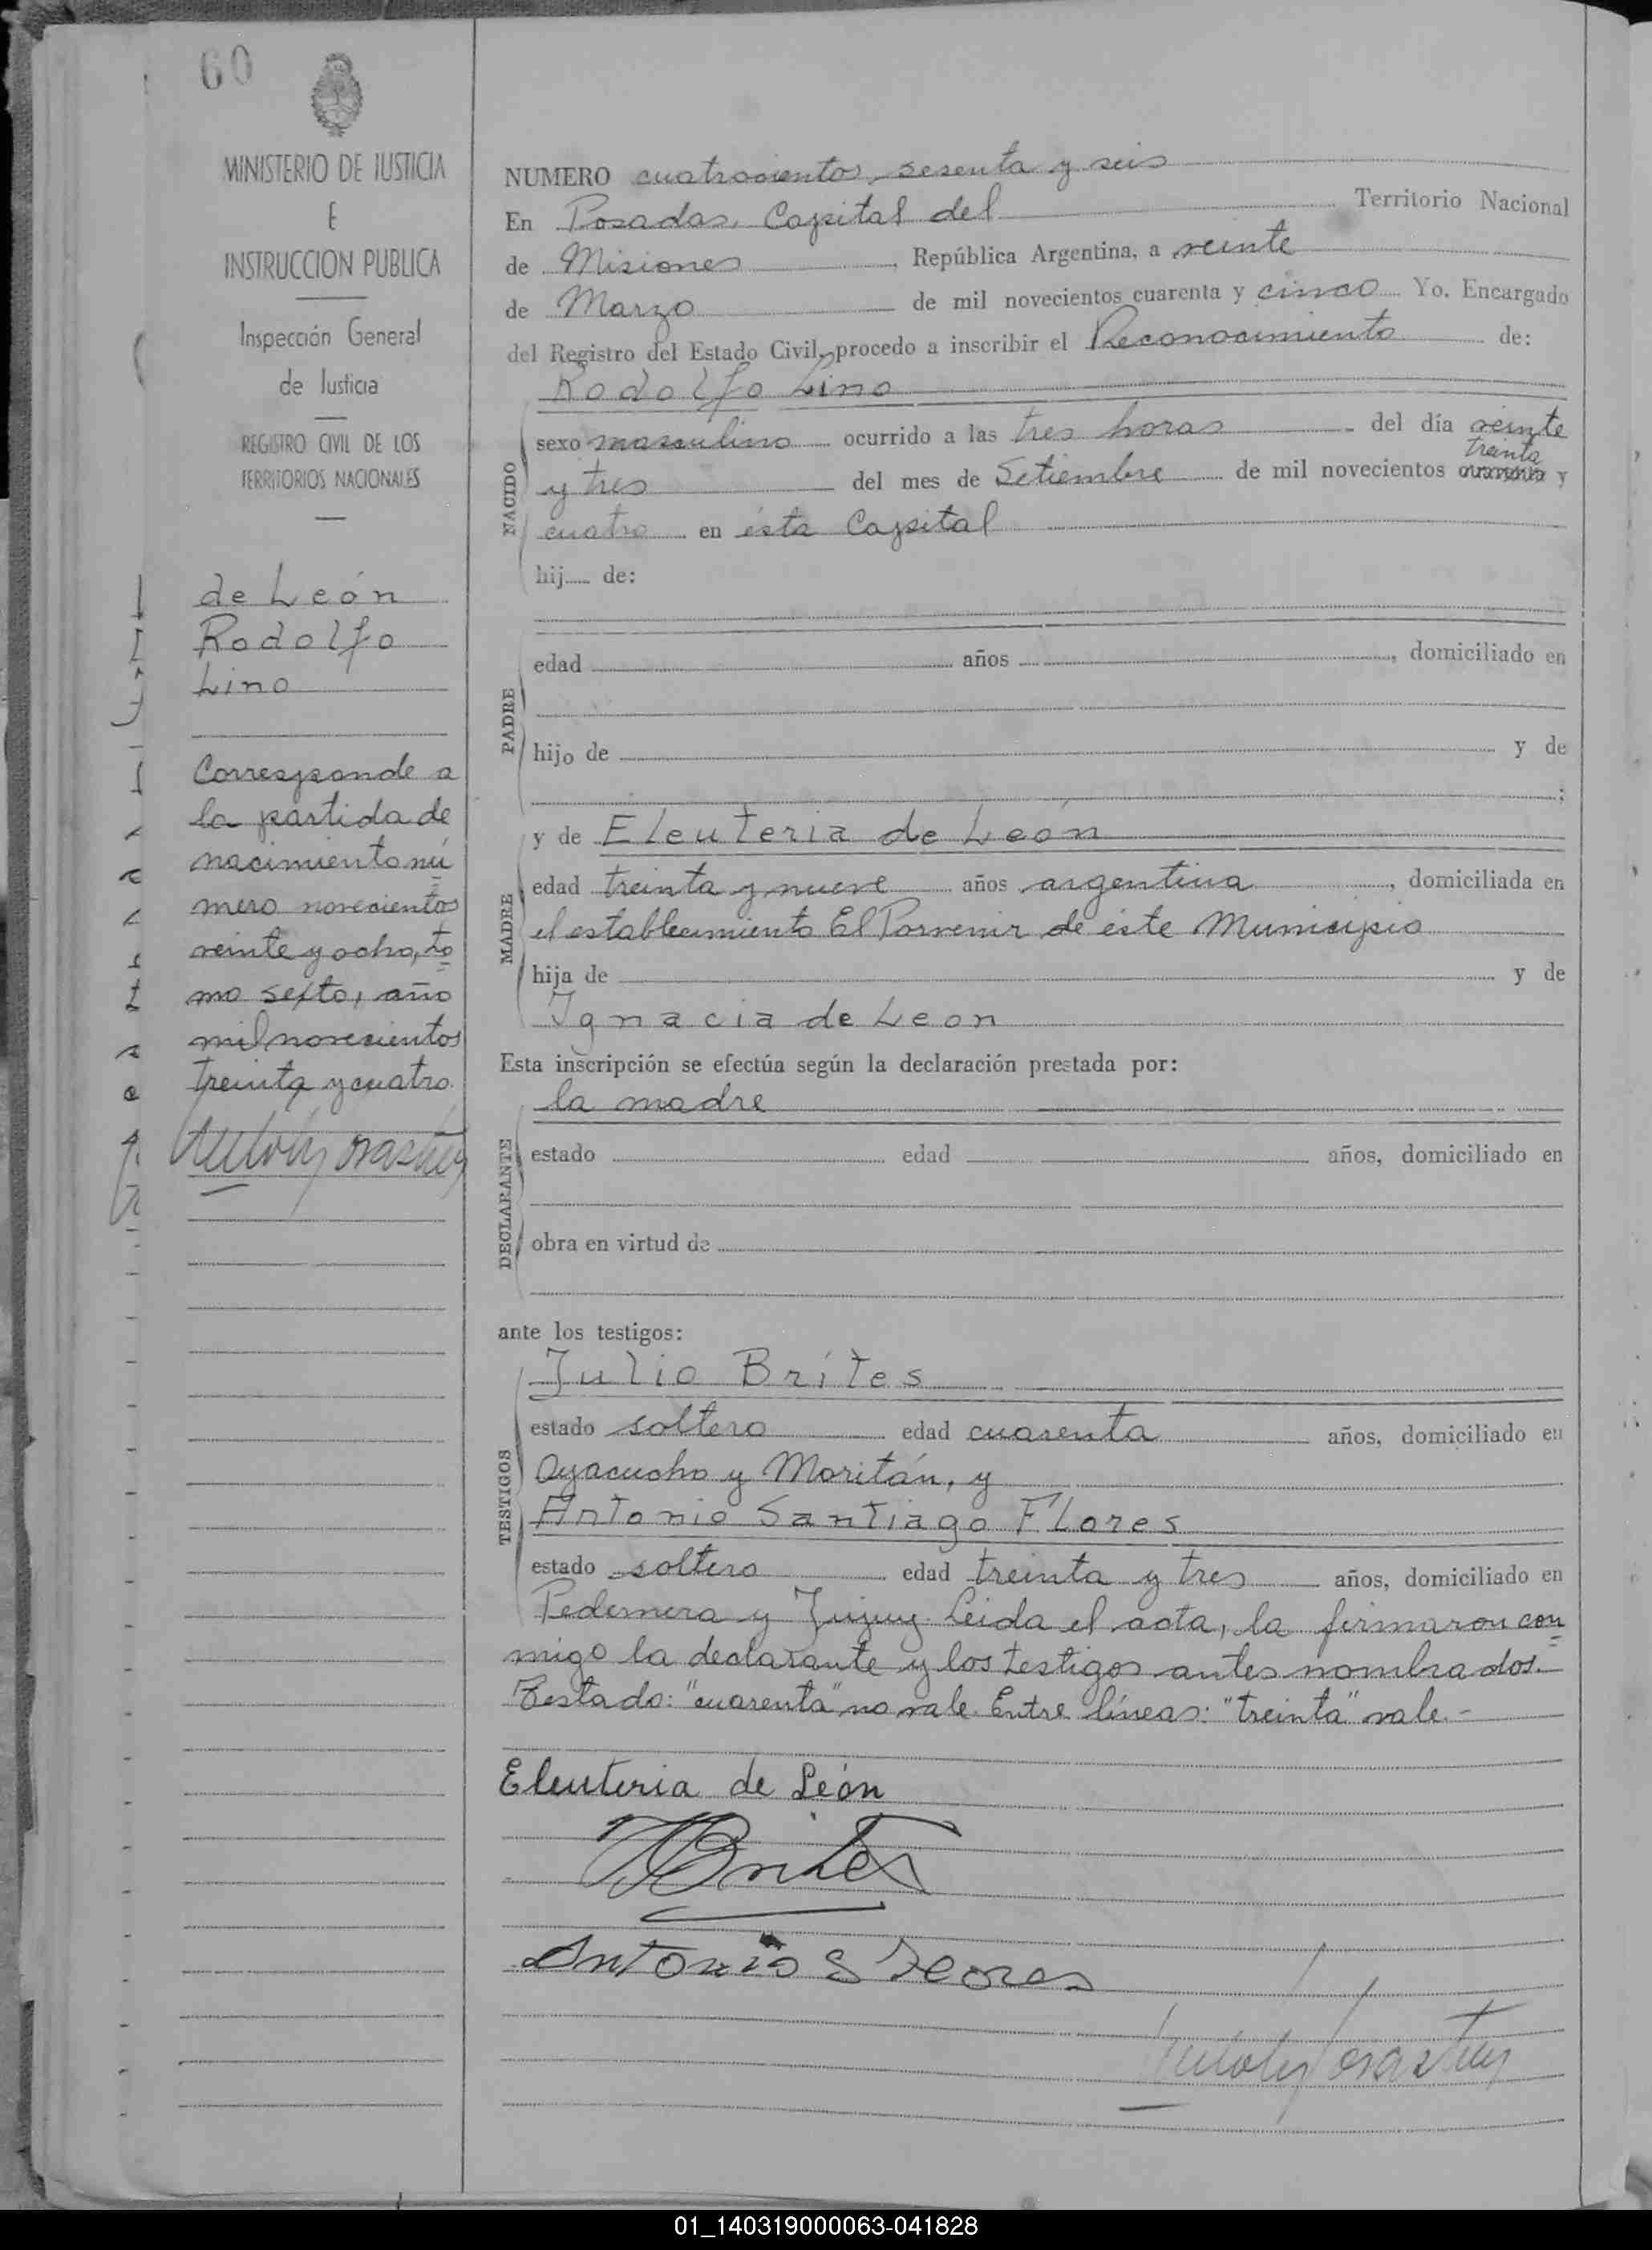 60
MINISTERIO DE JUSTICIA
E
INSTRUCCION PUBLICA
Inspección General
de Justicia
REGISTRO CIVIL DE LOS
TERRITORIOS NACIONALES
de León
Rodolfo
Lino
Corresponde a
la partida de
nacimiento nú
mero novecientos
veinte y ocho, to
mo sexto, año
mil novecientos
treinta y cuatro.
NUMERO cuatrocientos sesenta y seis
En Posadas, Capital del Territorio Nacional
de Misiones, República Argentina, a veinte
de Marzo de mil novecientos cuarenta y cinco Yo, Encargado
del Registro del Estado Civil, procedo a inscribir el Reconocimiento de:
Rodolfo Lino
NACIDO
sexo masculino ocurrido a las tres horas del día veinte
treinta
y tres del mes de Setiembre de mil novecientos cuarenta y
cuatro en ésta Capital
hij de:
PADRE
edad años, domiciliado en
hijo de y de
;
MADRE
y de Eleuteria de León
edad treinta y nueve años argentina, domiciliada en
el establecimiento El Porvenir de éste Municipio
hija de y de
Ignacia de Leon
Esta inscripción se efectúa según la declaración prestada por:
la madre
DECLARANTE
estado edad años, domiciliado en
obra en virtud de
ante los testigos:
TESTIGOS
Julio Brites
estado soltero edad cuarenta años, domiciliado en
Ayacucho y Moritán, y
Antonio Santiago Flores
estado soltero edad treinta y tres años, domiciliado en
Pedernera y Jujuy. Leida el acta, la firmaron con
migo la declarante y los testigos antes nombrados.-
Testado: "cuarenta" no vale. Entre líneas: "treinta" vale.-
Eleuteria de León
JBrites
Antonio S Flores
01_140319000063-041828